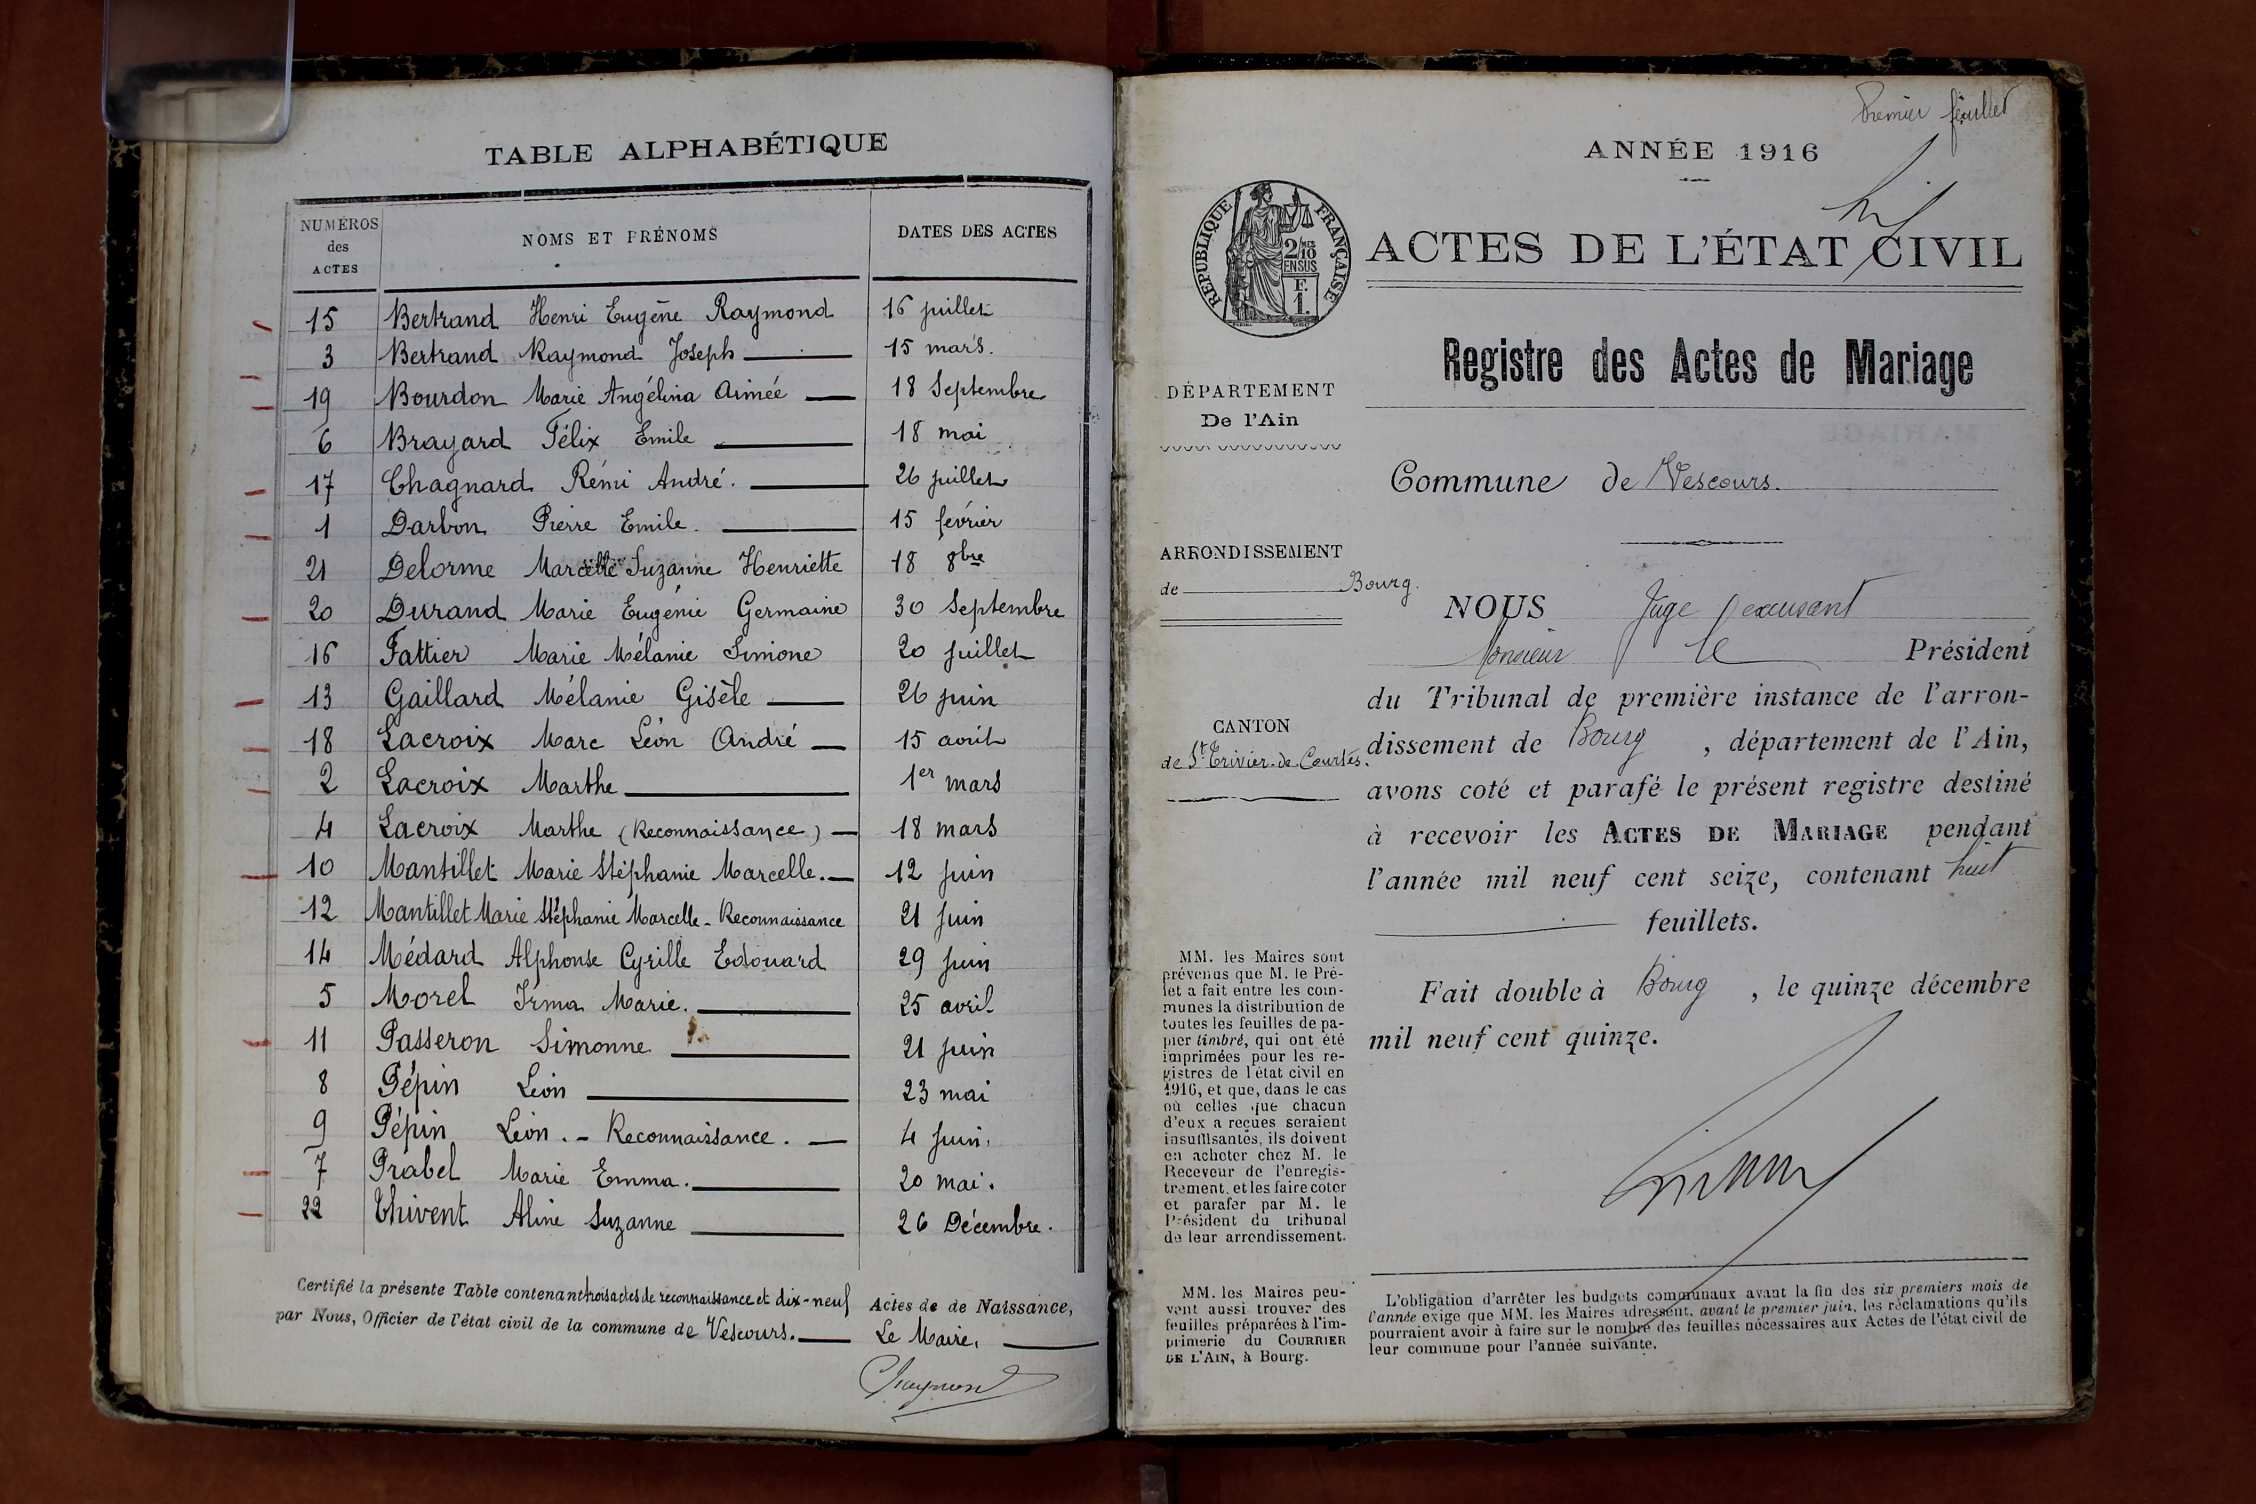 TABLE ALPHABÉTIQUE
NUMÉROS des ACTES
NOMS ET PRÉNOMS
DATES DES ACTES
15 Bertrand Henri Eugène Raymond 16 juillet
3 Bertrand Raymond Joseph 15 mars.
19 Bourdon Marie Angélina Aimée 18 Septembre
6 Brayard Félix Emile 18 mai
17 Chagnard Rémi André. 26 juillet
1 Darbon Pierre Emile. 15 février
21 Delorme Marcelle Suzanne Henriette 18 8bre
20 Durand Marie Eugénie Germaine 30 Septembre
16 Fattier Marie Mélanie Simone 20 juillet
13 Gaillard Mélanie Gisèle 26 juin
18 Lacroix Marc Léon André 15 avril
2 Lacroix Marthe 1er mars
4 Lacroix Marthe (Reconnaissance) 18 mars
10 Mantillet Marie Stéphanie Marcelle. 12 juin
12 Mantillet Marie Stéphanie Marcelle - Reconnaissance 21 juin
14 Médard Alphonse Cyrille Edouard 29 juin
5 Morel Irma Marie. 25 avril
11 Passeron Simonne 21 juin
8 Pépin Léon 23 mai
9 Pépin Léon. - Reconnaissance. 4 juin.
7 Prabel Marie Emma. 20 mai.
22 Thivent Aline Suzanne 26 Décembre.
Certifié la présente Table contenant trois actes de reconnaissance et dix-neuf Actes de de Naissance,
par Nous, Officier de l'état civil de la commune de Vescours. Le Maire,
Premier feuillet
ANNÉE 1916
RÉPUBLIQUE FRANÇAISE
2/10 MES
EN SUS
F.
1.
ACTES DE L'ÉTAT CIVIL
Registre des Actes de Mariage
DÉPARTEMENT
De l'Ain
Commune de Vescours.
ARRONDISSEMENT
de Bourg.
CANTON
de St Trivier-de-Courtes.
NOUS Juge
Monsieur le Président
du Tribunal de première instance de l'arron-
dissement de Bourg, département de l'Ain,
avons coté et parafé le présent registre destiné
à recevoir les ACTES DE MARIAGE pendant
l'année mil neuf cent seize, contenant huit
feuillets.
Fait double à Bourg, le quinze décembre
mil neuf cent quinze.
MM. les Maires sont
prévenus que M. le Pré-
fet a fait entre les com-
munes la distribution de
toutes les feuilles de pa-
pier timbré, qui ont été
imprimées pour les re-
gistres de l'état civil en
1916, et que, dans le cas
où celles que chacun
d'eux a reçues seraient
insuffisantes, ils doivent
en acheter chez M. le
Receveur de l'enregis-
trement, et les faire coter
et parafer par M. le
Président du tribunal
de leur arrondissement.
MM. les Maires peu-
vent aussi trouver des
feuilles préparées à l'im-
primerie du COURRIER
DE L'AIN, à Bourg.
L'obligation d'arrêter les budgets communaux avant la fin des six premiers mois de
l'année exige que MM. les Maires adressent, avant le premier juin, les réclamations qu'ils
pourraient avoir à faire sur le nombre des feuilles nécessaires aux Actes de l'état civil de
leur commune pour l'année suivante.